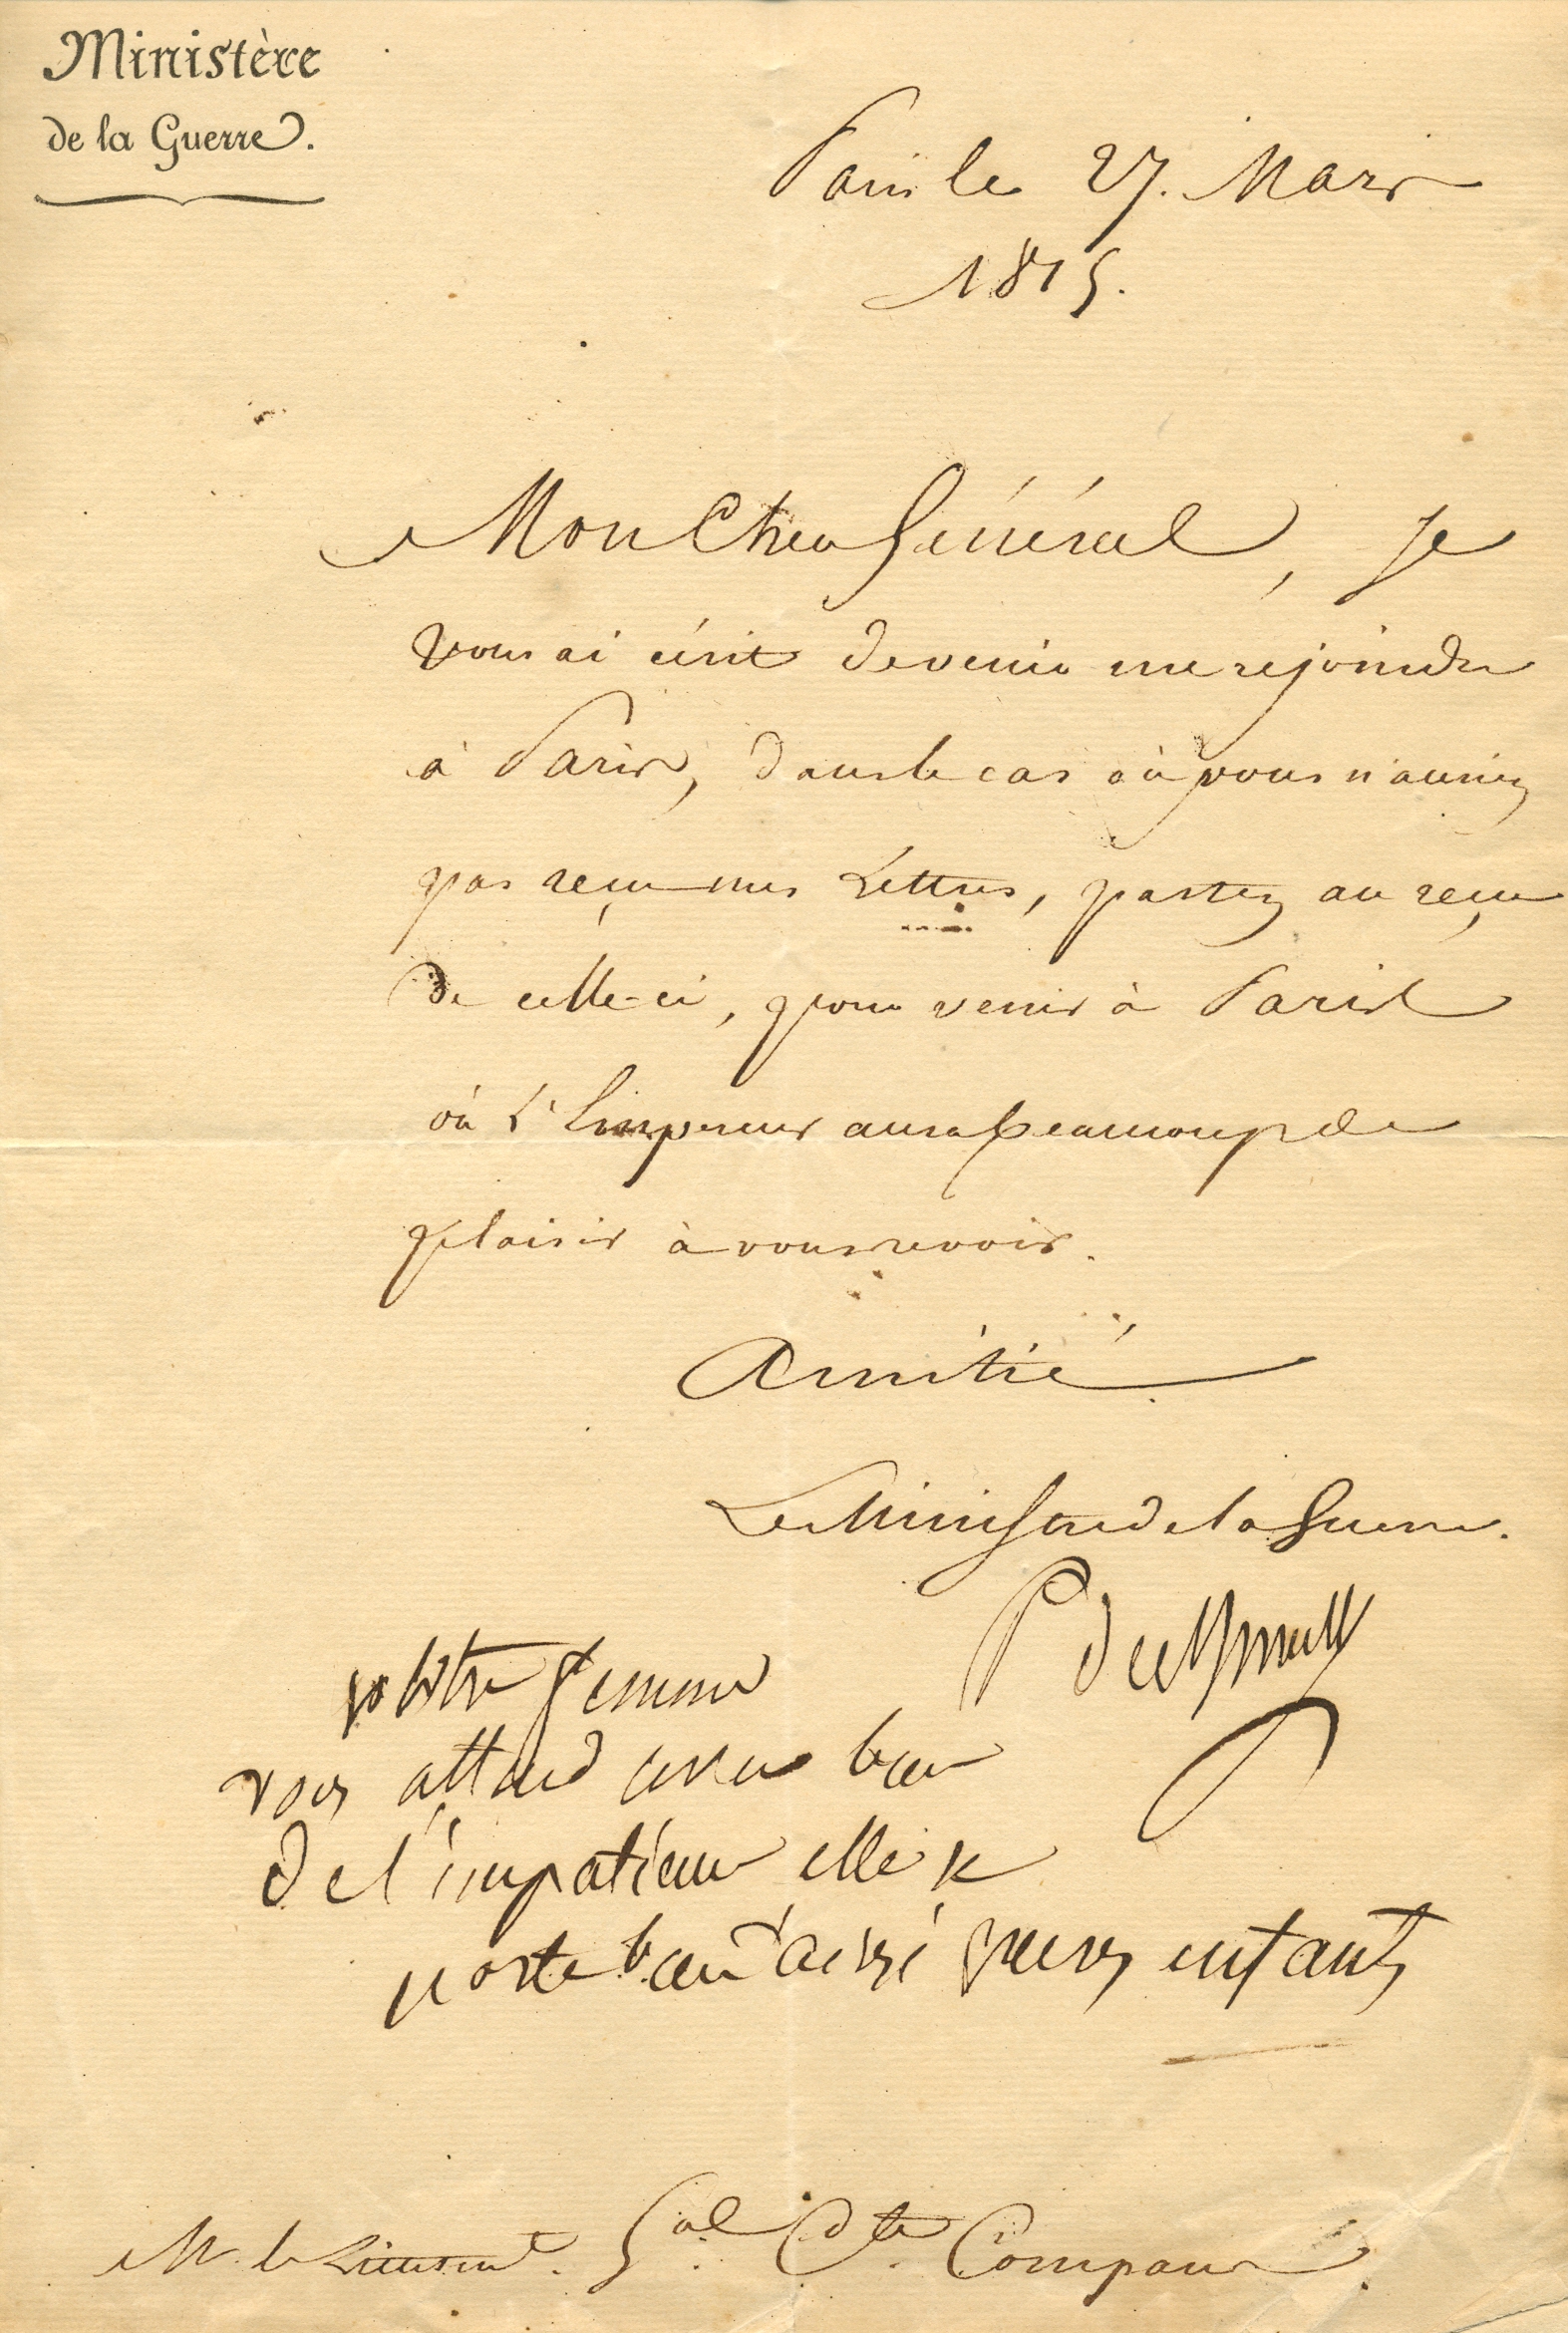 Ministère
de la Guerre.
Paris le 27. Mars
1815.
Mon Cher Général, Je
vous ai écrit de venir me rejoindre
à Paris, dans le cas où vous n'auriez
pas reçu mes Lettres, partez au reçu
de celle-ci, pour venir à Paris
où L'Empereur aura beaucoup de
plaisir à vous revoir.
Amitié
Le Ministre de la Guerre.
P d'Eckmühl
votre femme
vous attend avec bien
de l'impatience elle se
porte bien ainsi que vos enfants
M. le Lieutenant. Gal. Cte. Compans